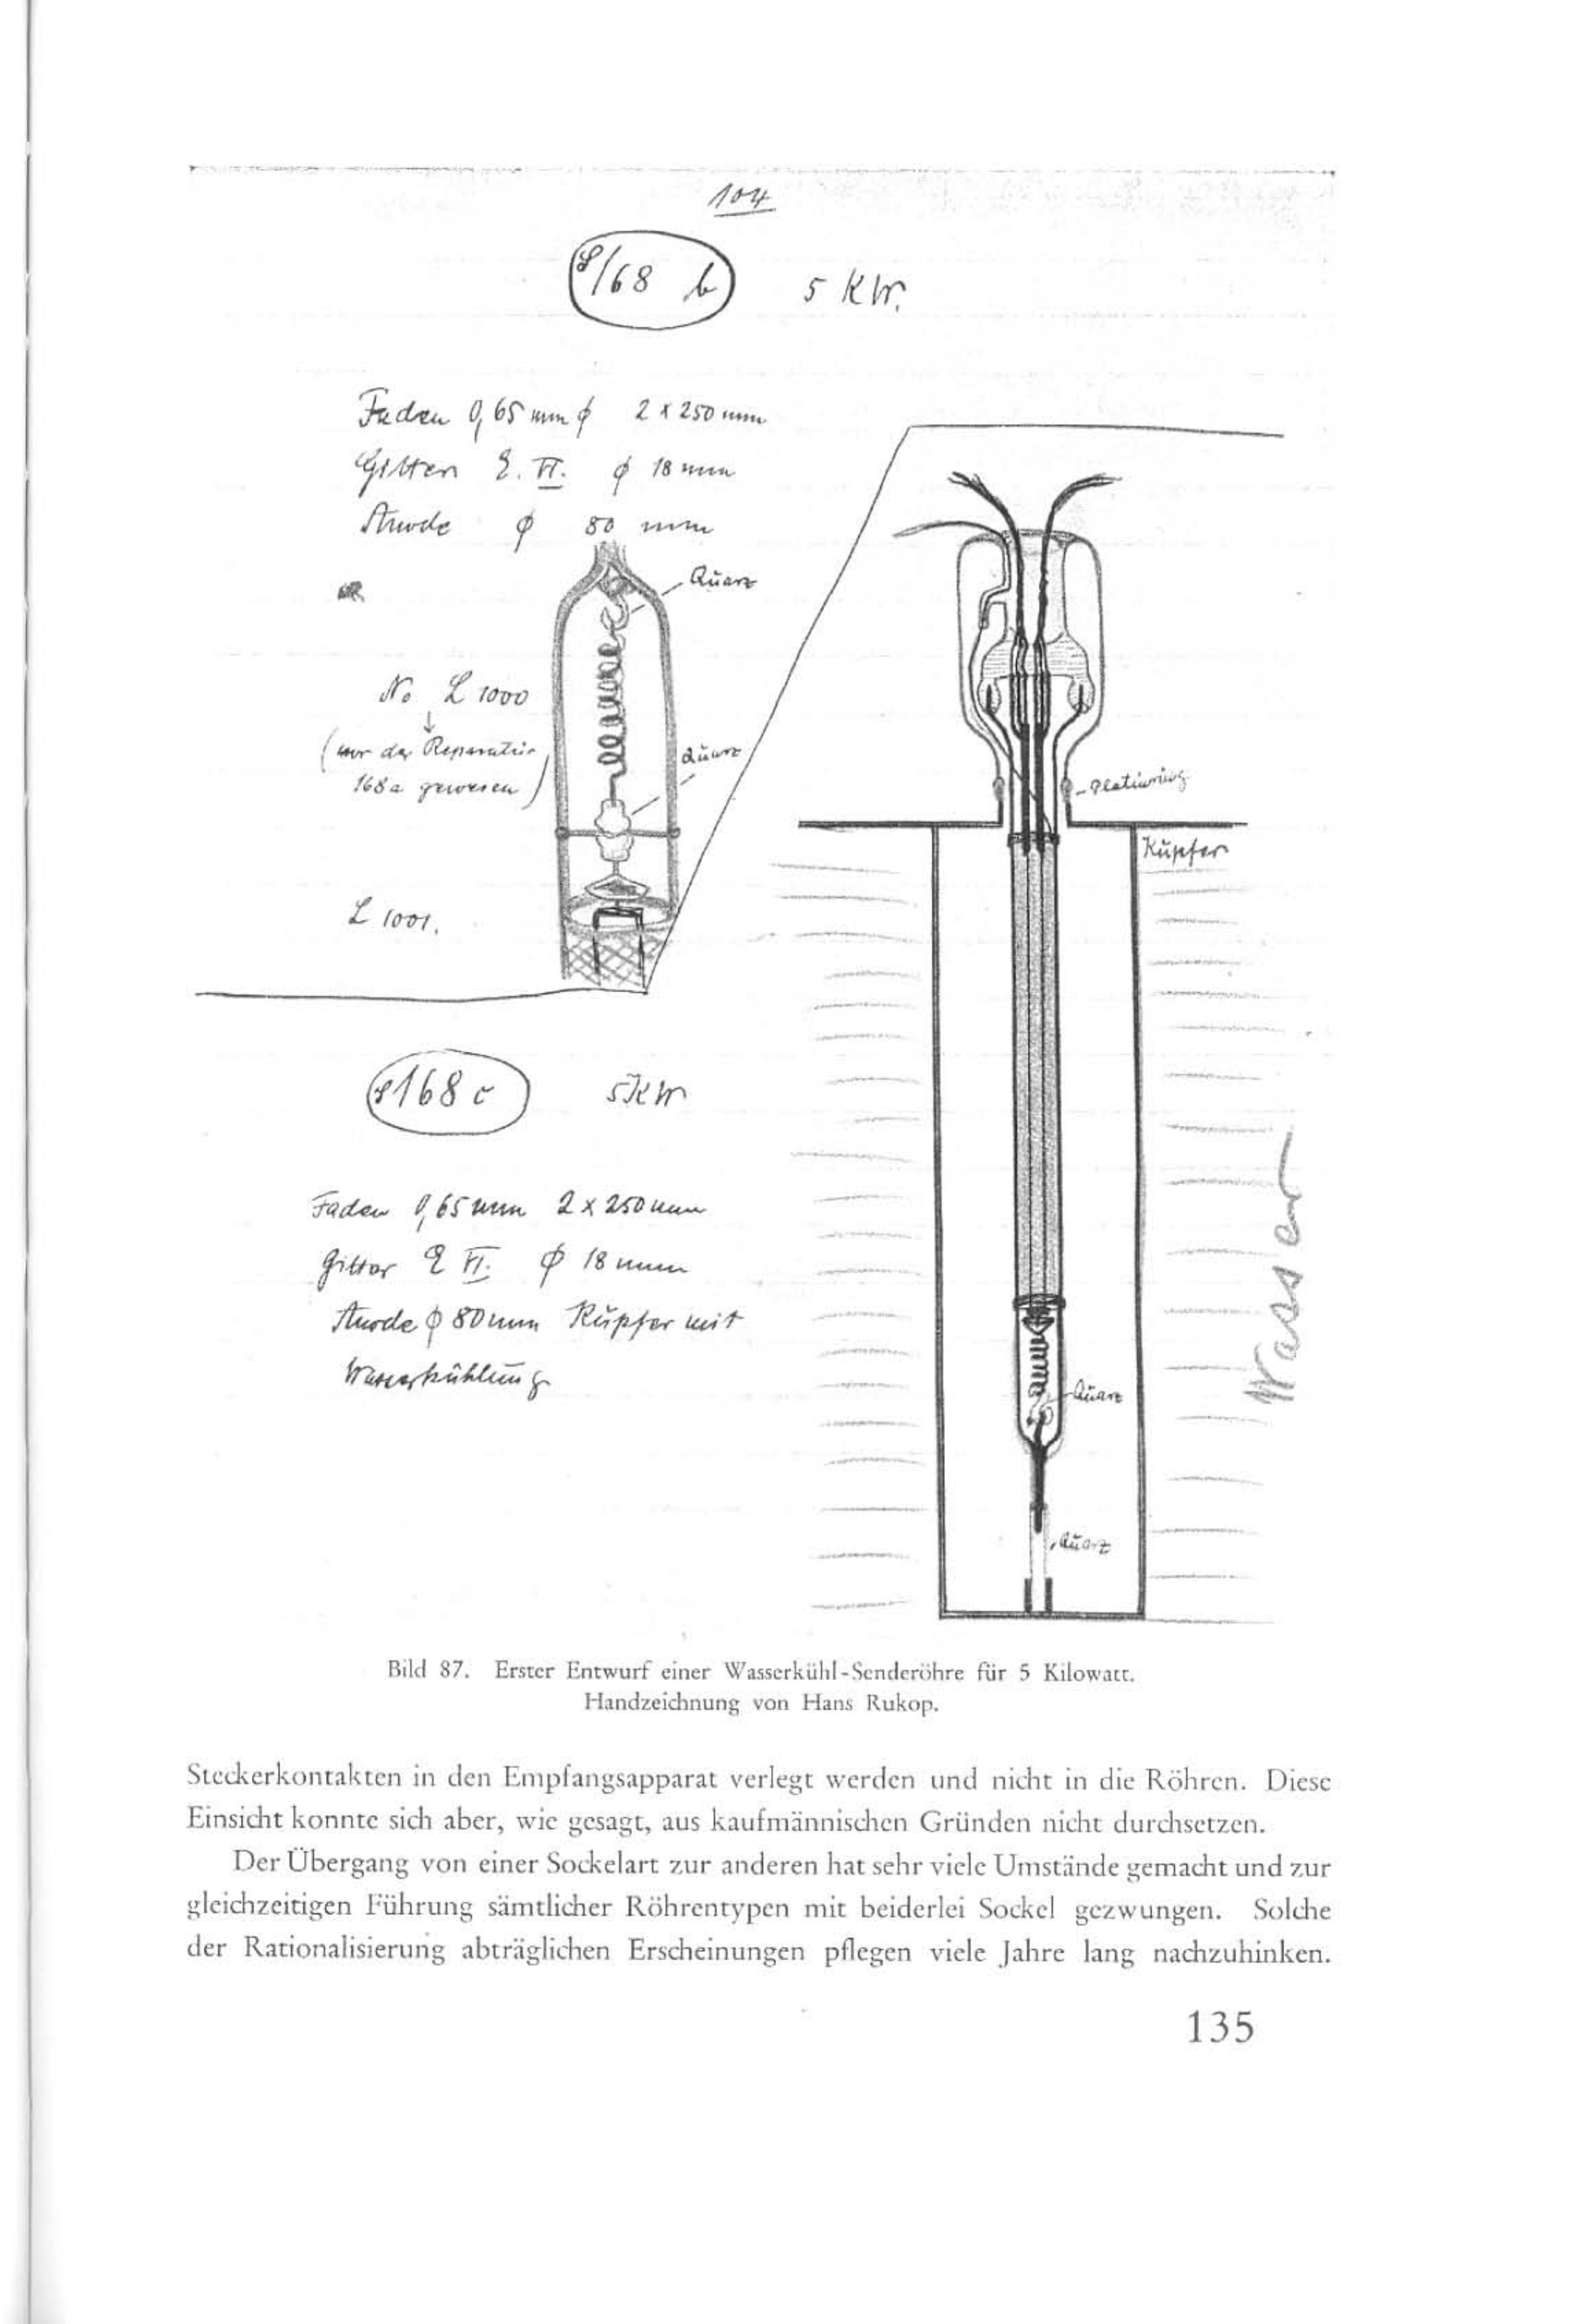 104
S/68 b 5 KW.
Faden 0,65 mm ϕ 2 x 250 mm
Gitter E. VI. ϕ 18 mm
Anode ϕ 80 mm
Quarz
No L 1000
(vor der Reparatur
168a gewesen)
Quarz
L 1001.
Platinring
Kupfer
S168 c 5KW
Faden 0,65 mm 2 x 250 mm
Gitter E VI. ϕ 18 mm
Anode ϕ 80 mm Kupfer mit
Wasserkühlung
Wasser
Quarz
Quarz
Bild 87. Erster Entwurf einer Wasserkühl-Senderöhre für 5 Kilowatt.
Handzeichnung von Hans Rukop.
Steckerkontakten in den Empfangsapparat verlegt werden und nicht in die Röhren. Diese
Einsicht konnte sich aber, wie gesagt, aus kaufmännischen Gründen nicht durchsetzen.
Der Übergang von einer Sockelart zur anderen hat sehr viele Umstände gemacht und zur
gleichzeitigen Führung sämtlicher Röhrentypen mit beiderlei Sockel gezwungen. Solche
der Rationalisierung abträglichen Erscheinungen pflegen viele Jahre lang nachzuhinken.
135